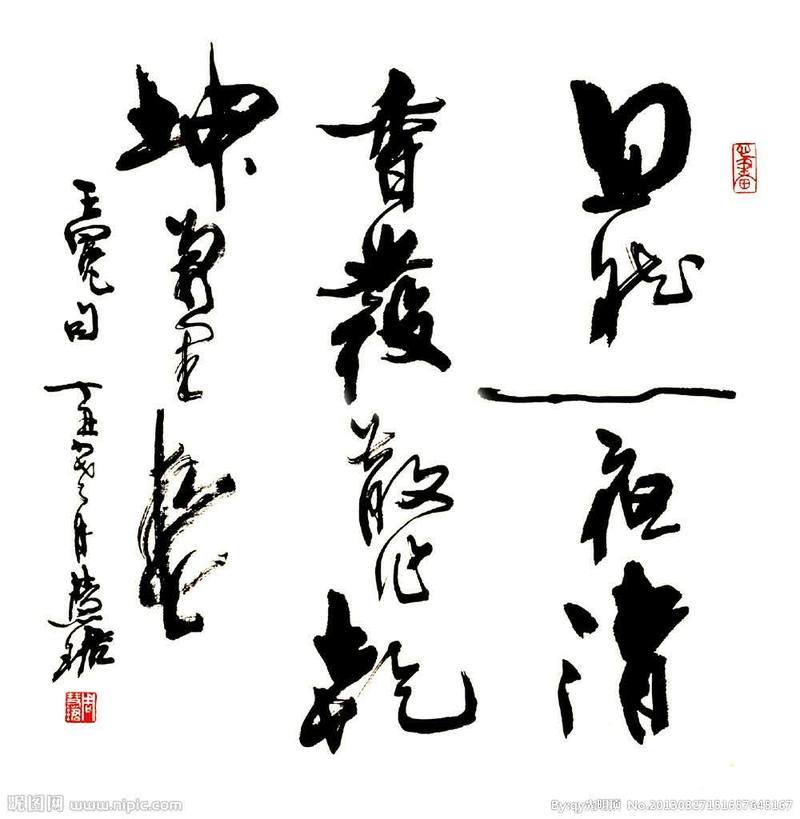 忽然一夜清
香發散作乾
坤萬里春
王冕句 丁丑 月慧珺
昵图网 www.nipic.com
By:qy光明顶 No.20130827151657645167